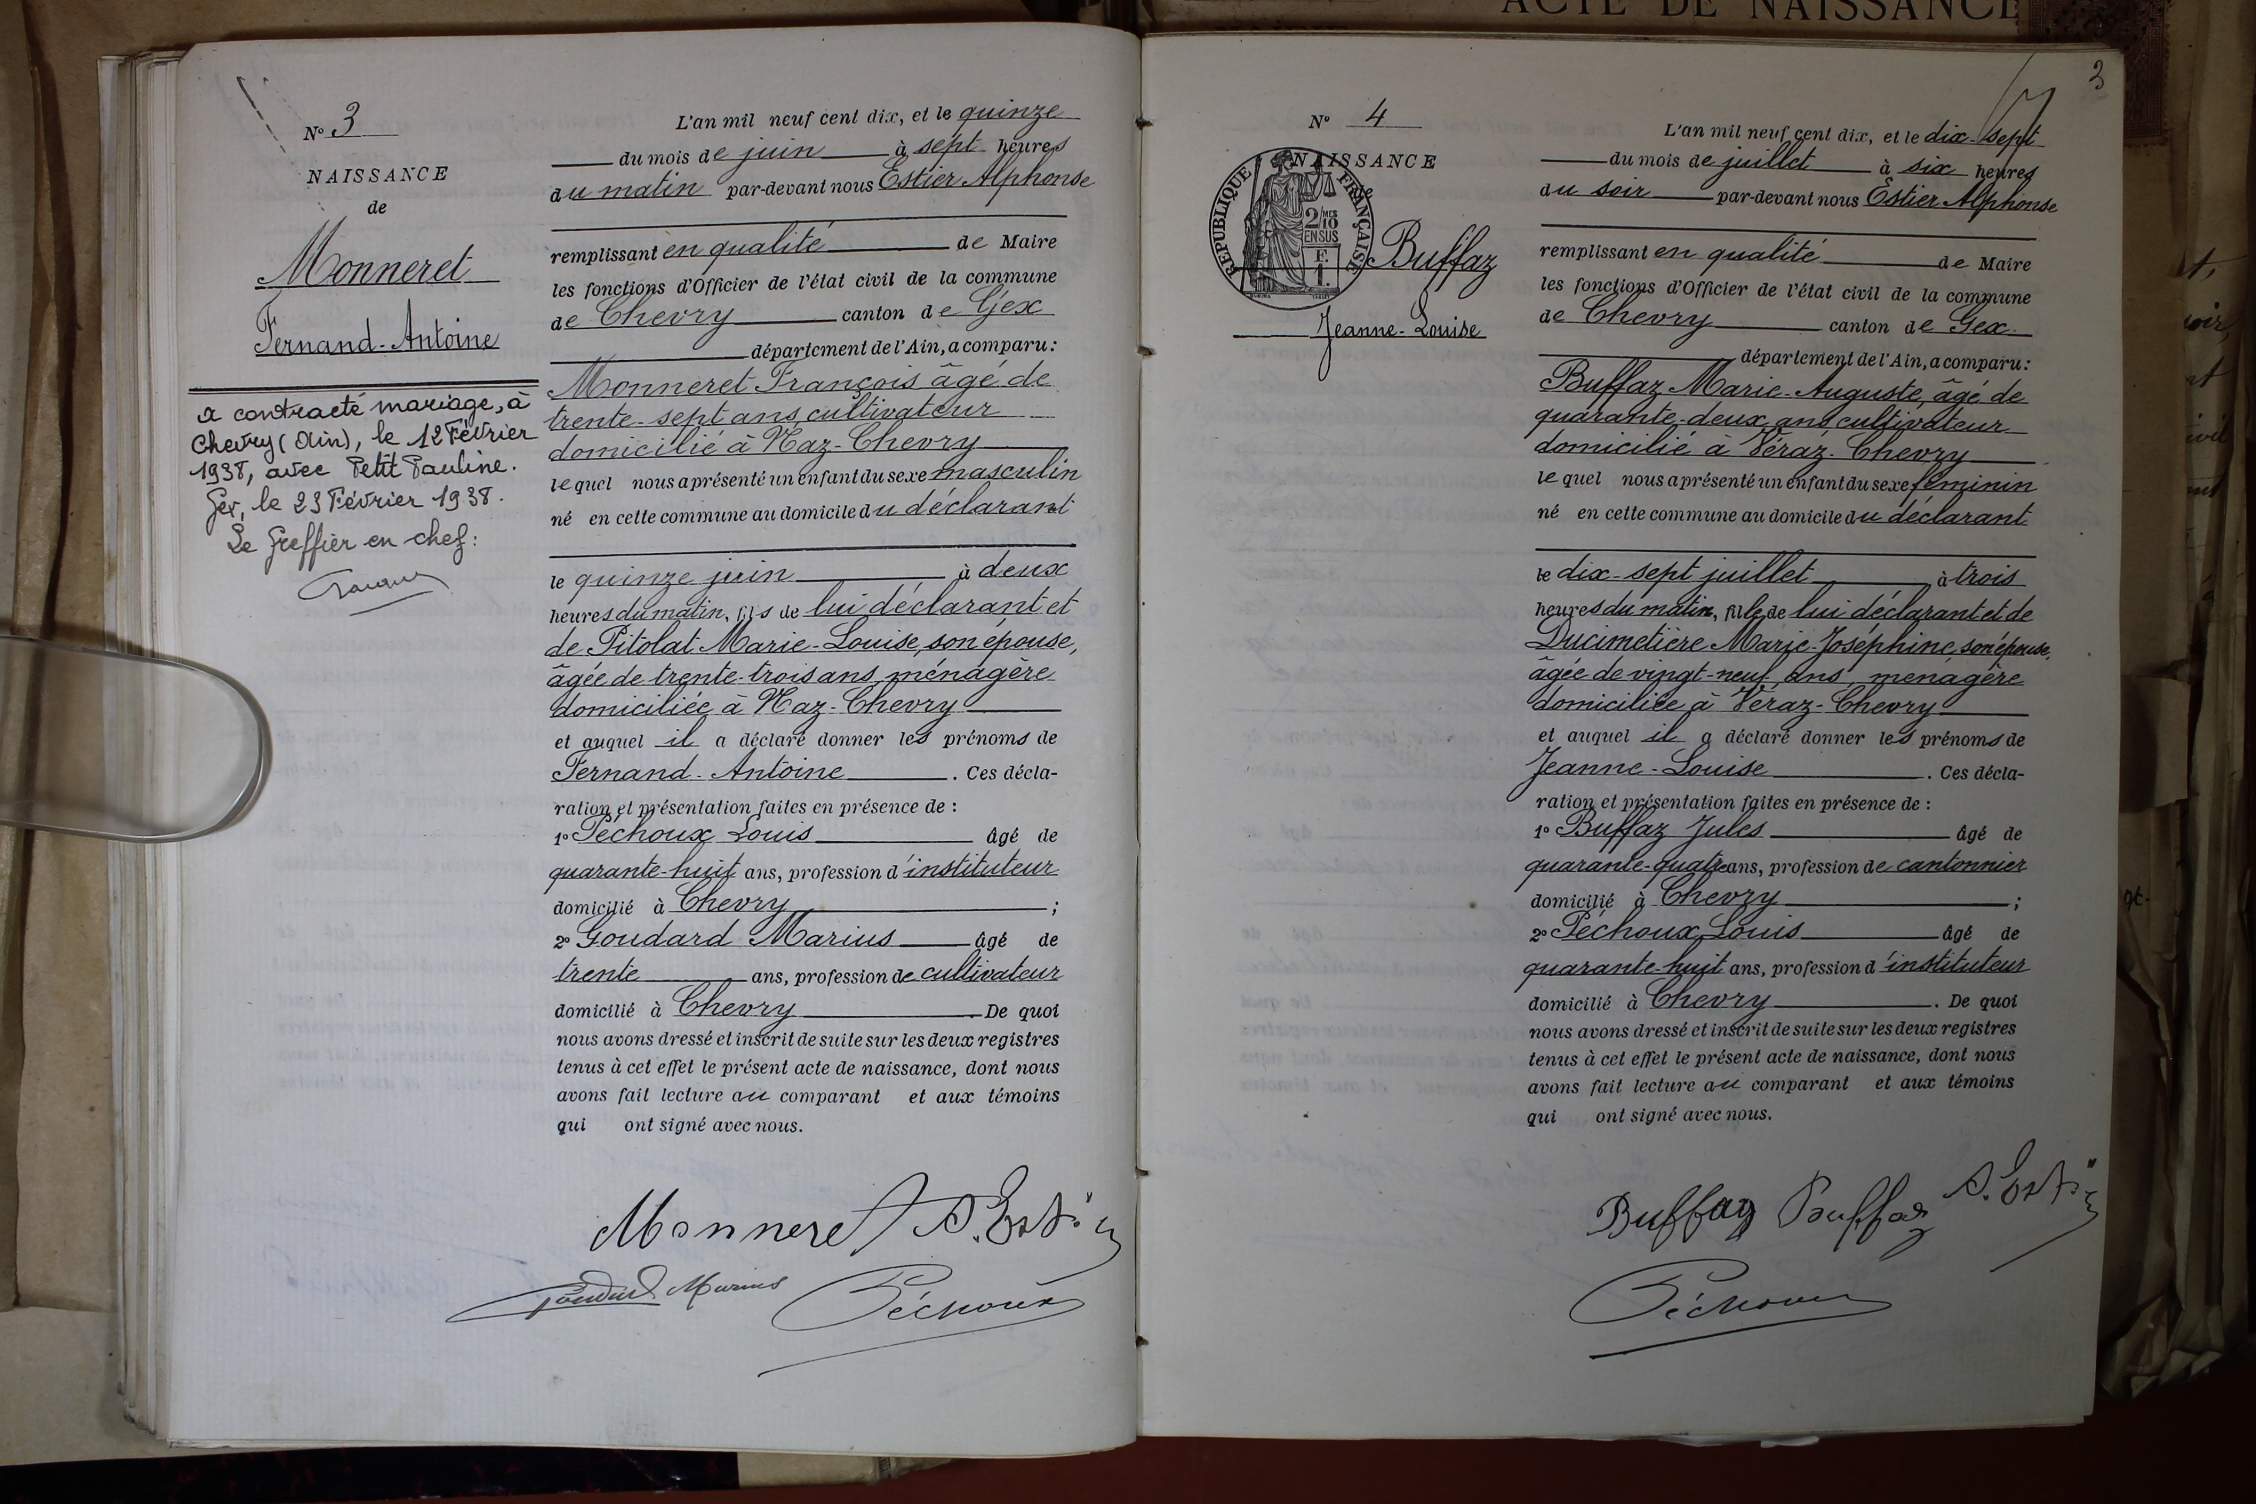 ACTE DE NAISSANCE
N° 3
NAISSANCE
de
Monneret
Fernand-Antoine
a contracté mariage, à
Chevry (Ain), le 12 Février
1938, avec Petit Pauline.
Gex, le 23 Février 1938.
Le Greffier en chef:
L'an mil neuf cent dix, et le quinze
du mois de juin à sept heures
du matin par-devant nous Estier Alphonse
remplissant en qualité de Maire
les fonctions d'Officier de l'état civil de la commune
de Chevry canton de Gex
département de l'Ain, a comparu:
Monneret François âgé de
trente-sept ans, cultivateur
domicilié à Naz-Chevry
lequel nous a présenté un enfant du sexe masculin
né en cette commune au domicile du déclarant
le quinze juin à deux
heures du matin, fils de lui déclarant et
de Pitolat Marie-Louise, son épouse,
âgée de trente-trois ans, ménagère
domiciliée à Naz-Chevry
et auquel il a déclaré donner les prénoms de
Fernand-Antoine. Ces décla-
ration et présentation faites en présence de :
1° Péchoux Louis âgé de
quarante-huit ans, profession d'instituteur
domicilié à Chevry ;
2° Goudard Marius âgé de
trente ans, profession de cultivateur
domicilié à Chevry De quoi
nous avons dressé et inscrit de suite sur les deux registres
tenus à cet effet le présent acte de naissance, dont nous
avons fait lecture au comparant et aux témoins
qui ont signé avec nous.
Monneret A. Estier
Goudard Marius Péchoux
3
N° 4
NAISSANCE
de
RÉPUBLIQUE FRANÇAISE
2/10 MES
EN SUS
F.
1.
Buffaz
Jeanne-Louise
L'an mil neuf cent dix, et le dix-sept
du mois de juillet à six heures
du soir par-devant nous Estier Alphonse
remplissant en qualité de Maire
les fonctions d'Officier de l'état civil de la commune
de Chevry canton de Gex
département de l'Ain, a comparu:
Buffaz Marie-Auguste, âgé de
quarante-deux ans cultivateur
domicilié à Véraz-Chevry
lequel nous a présenté un enfant du sexe féminin
né en cette commune au domicile du déclarant
le dix-sept juillet à trois
heures du matin, fille de lui déclarant et de
Ducimetière Marie-Joséphine, son épouse,
âgée de vingt-neuf ans, ménagère
domiciliée à Véraz-Chevry
et auquel il a déclaré donner les prénoms de
Jeanne-Louise. Ces décla-
ration et présentation faites en présence de :
1° Buffaz Jules âgé de
quarante-quatre ans, profession de cantonnier
domicilié à Chevry ;
2° Péchoux Louis âgé de
quarante-huit ans, profession d'instituteur
domicilié à Chevry. De quoi
nous avons dressé et inscrit de suite sur les deux registres
tenus à cet effet le présent acte de naissance, dont nous
avons fait lecture au comparant et aux témoins
qui ont signé avec nous.
Buffaz Buffaz A. Estier
Péchoux